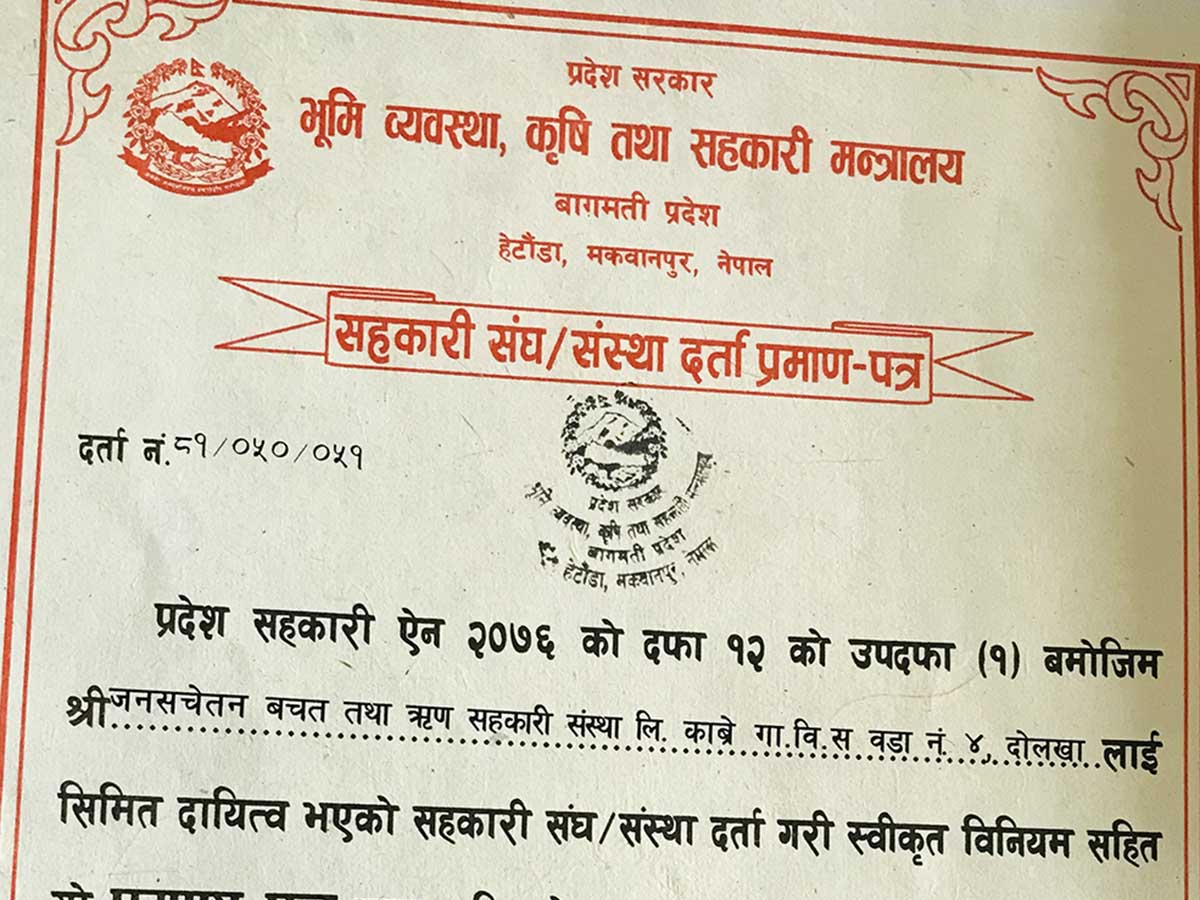 प्रदेश सरकार
भूमि व्यवस्था, कृषि तथा सहकारी मन्त्रालय
बागमती प्रदेश
हेटौंडा, मकवानपुर, नेपाल
सहकारी संघ/संस्था दर्ता प्रमाण-पत्र
दर्ता नं. ८१/०५०/०५१
प्रदेश सरकार
भूमि व्यवस्था, कृषि तथा सहकारी मन्त्रालय
बागमती प्रदेश
हेटौंडा, मकवानपुर,
प्रदेश सहकारी ऐन २०७६ को दफा १२ को उपदफा (१) बमोजिम
श्री जनसचेतन बचत तथा ऋण सहकारी संस्था लि. काब्रे गा.वि.स वडा नं. ४, दोलखा लाई
सिमित दायित्व भएको सहकारी संघ/संस्था दर्ता गरी स्वीकृत विनियम सहित